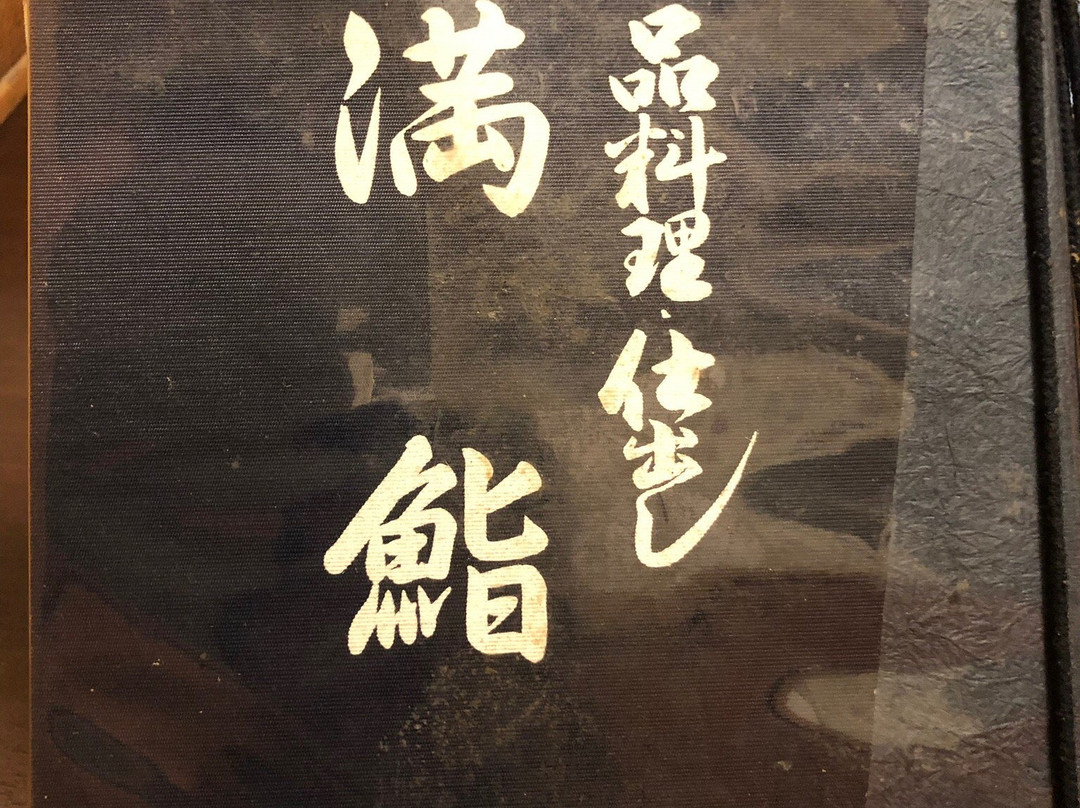 品料理・仕出し
満鮨